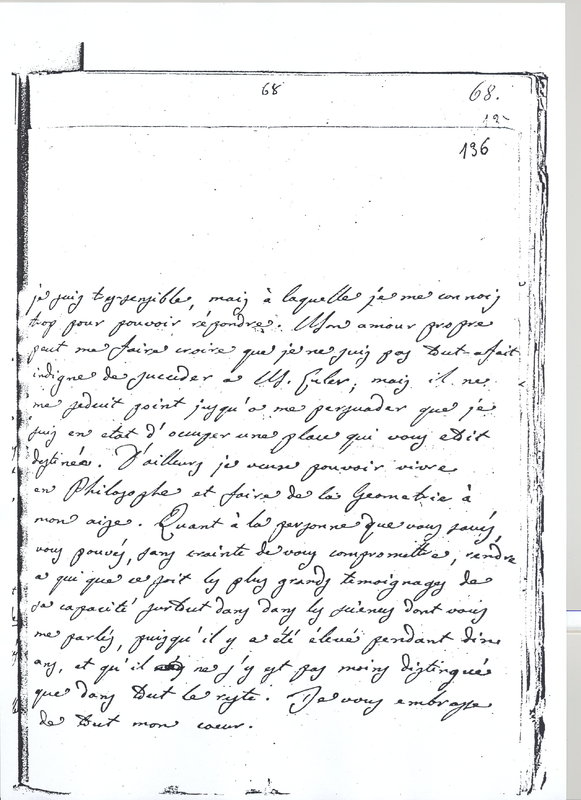 68
68.
12
136
je suis tres-sensible, mais à laquelle je me connois
trop pour pouvoir répondre. Mon amour propre
peut me faire croire que je ne suis pas tout-a-fait
indigne de succeder a M. Euler; mais il ne
me seduit point jusqu'a me persuader que je
suis en etat d'occuper une place qui vous etoit
destinée. D'ailleurs je veux pouvoir vivre
en Philosophe et faire de la Geometrie à
mon aise. Quant à la personne que vous savés,
vous pouvés, sans crainte de vous compromettre, rendre
a qui que ce soit les plus grands temoignages de
sa capacité surtout dans dans les sciences dont vous
me parlés, puisqu'il y a été élevé pendant dix
ans, et qu'il ne s'y est pas moins distingué
que dans tout le reste. Je vous embrasse
de tout mon coeur.